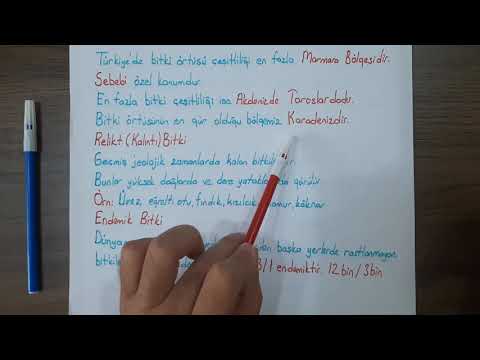 Türkiye'de bitki örtüsü çeşitliliği en fazla Marmara Bölgesidir.
Sebebi özel konumdur.
En fazla bitki çeşitliliği ise Akdenizde Toroslardadır.
Bitki örtüsünün en gür olduğu bölgemiz Karadenizdir.
Relikt (Kalıntı) Bitki
Geçmiş jeolojik zamanlarda kalan
Bunlar yüksek dağlarda ve dere görülür
Örn: eğrelti otu, fındık, kızılcık, köknar
Endemik Bitki
Dünya başka yerlerde rastlanmayan
3/1 endemiktir. 12 bin / 3 bin